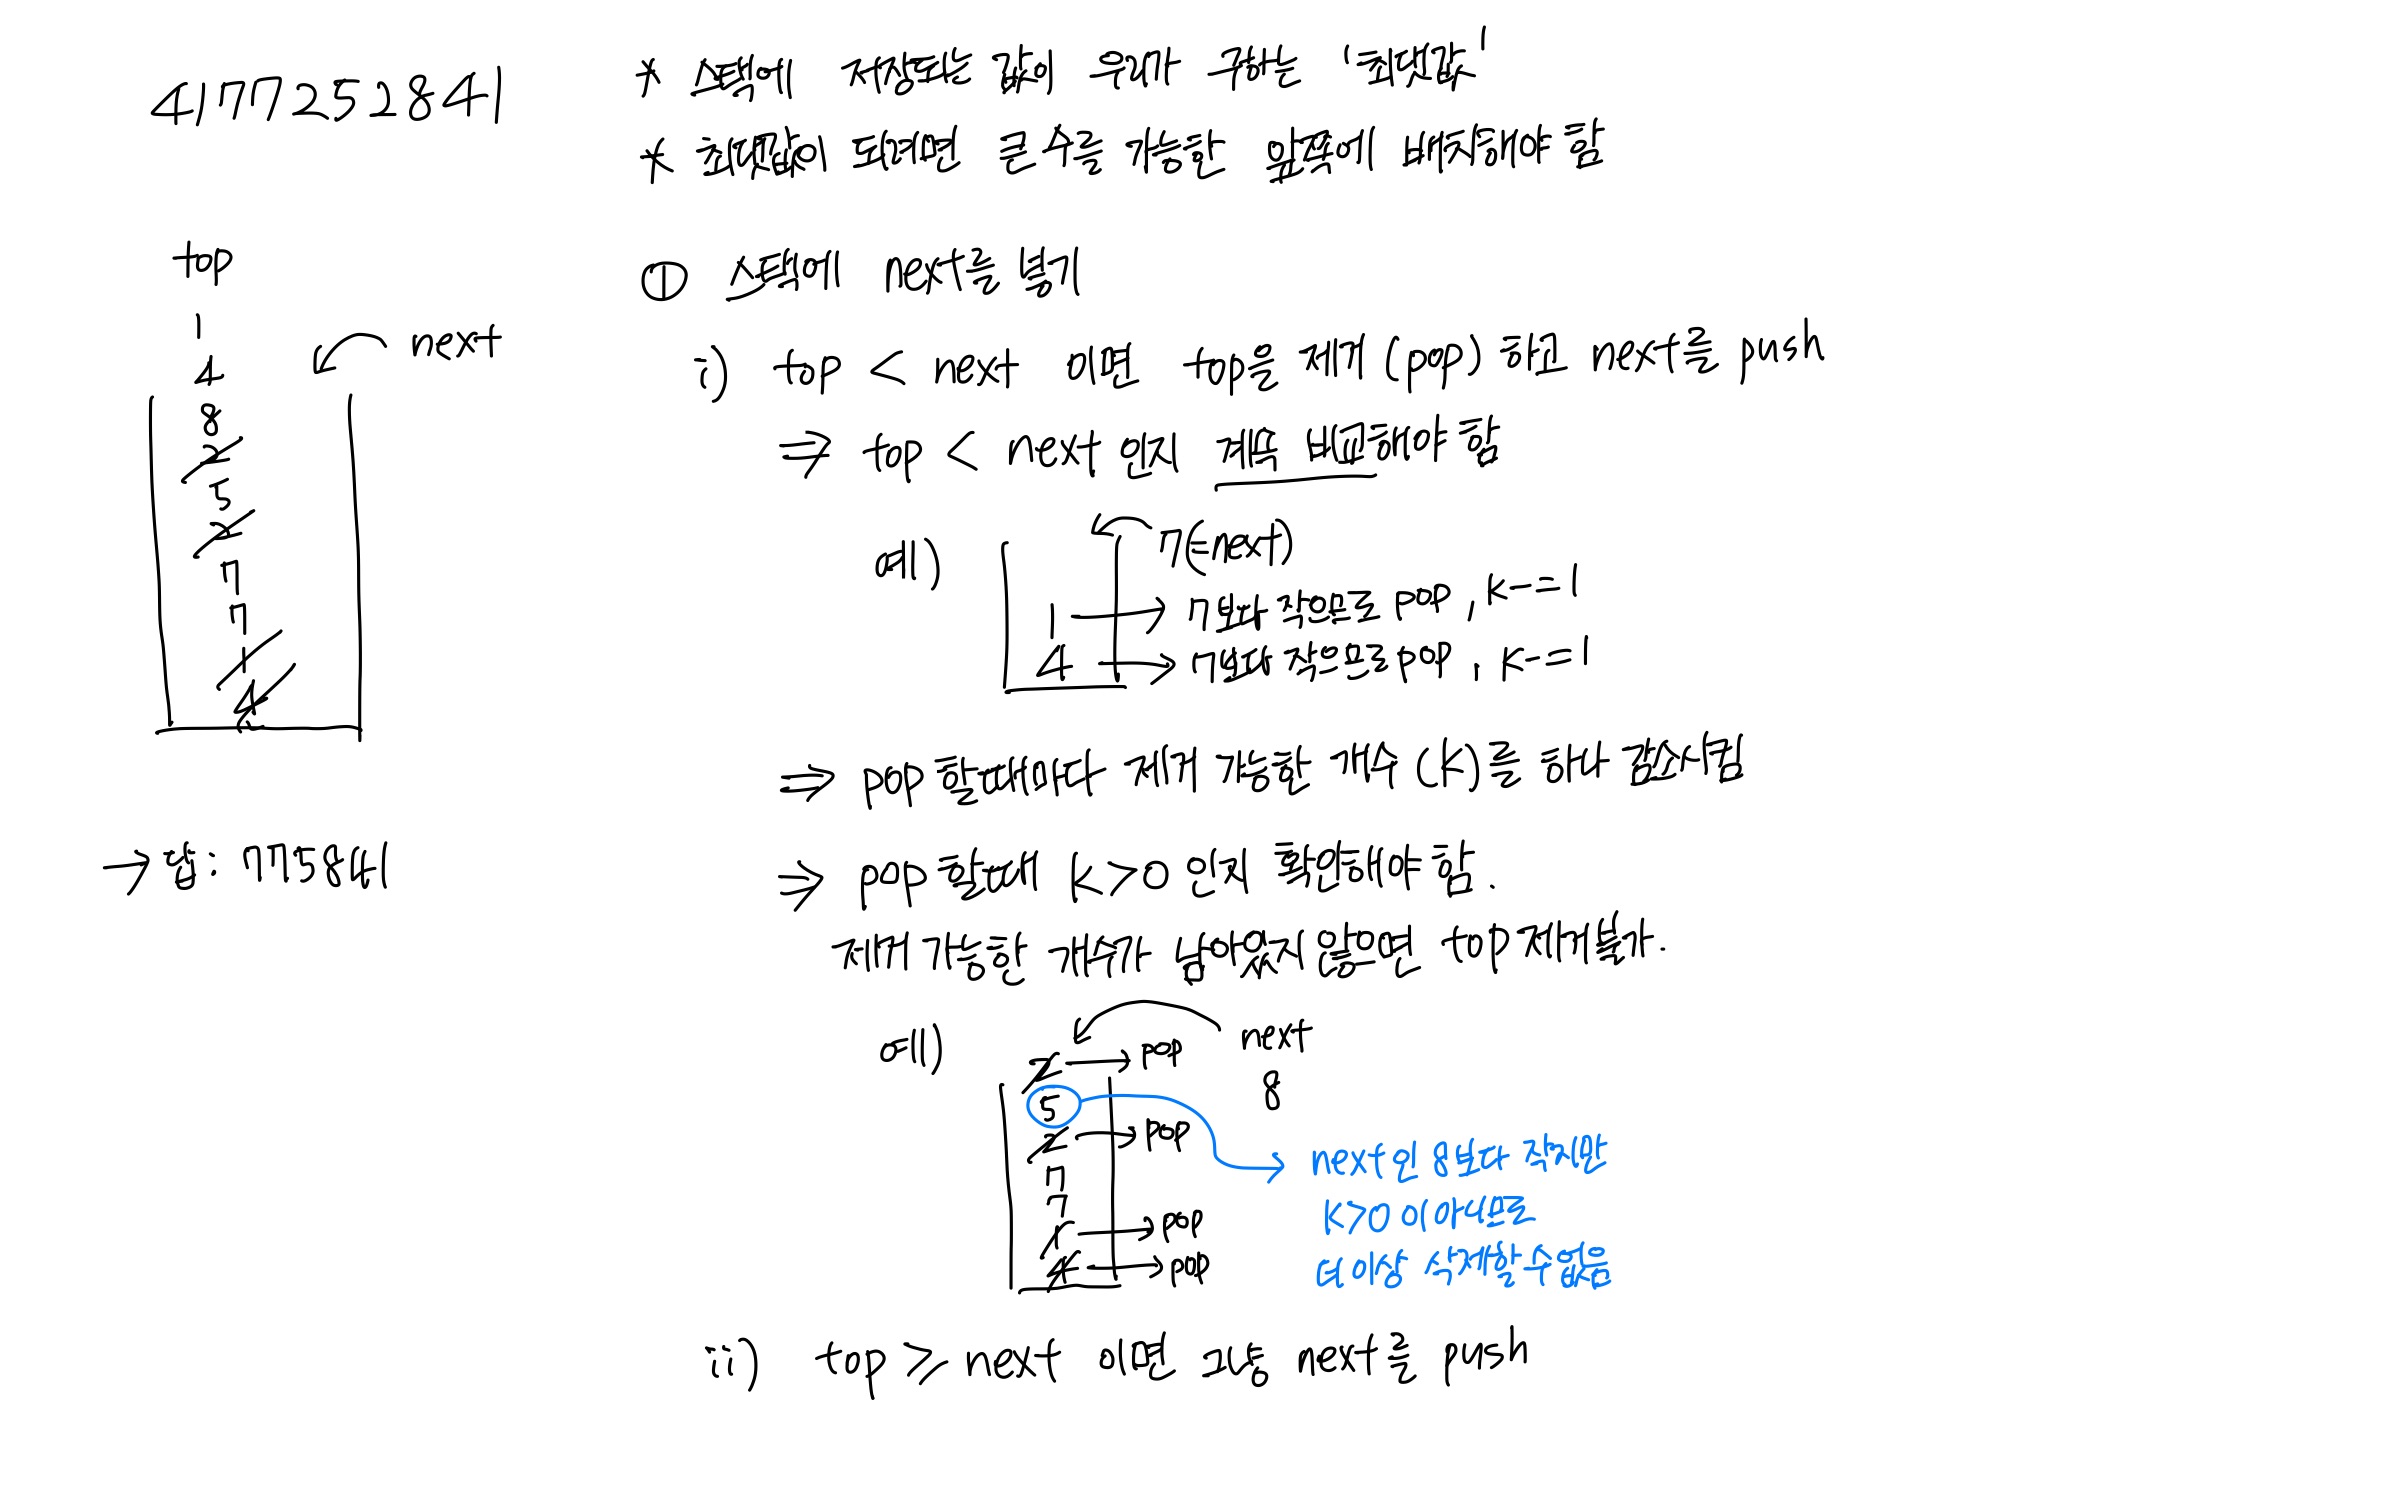 4177252841
top
1
4
next
8
2
5
2
7
7
1
4
→ 답: 775841
* 스택에 저장되는 값이 우리가 구하는 '최댓값'
* 최댓값이 되려면 큰 수를 가능한 앞쪽에 배치해야 함
① 스택에 next를 넣기
i) top < next 이면 top을 제거(pop)하고 next를 push
⇒ top < next 인지 계속 비교해야 함
예) 7(=next)
1 → 7보다 작으므로 pop, k-=1
4 → 7보다 작으므로 pop, k-=1
⇒ pop 할 때마다 제거 가능한 개수(k)를 하나 감소시킴
⇒ pop 할 때 k>0 인지 확인해야 함.
제거 가능한 개수가 남아있지 않으면 top 제거 불가.
예) next
2 → pop
8
5
2 → pop
7
7
1 → pop
4 → pop
next인 8보다 작지만
k>0 이 아니므로
더 이상 삭제할 수 없음
ii) top ≥ next 이면 그냥 next를 push